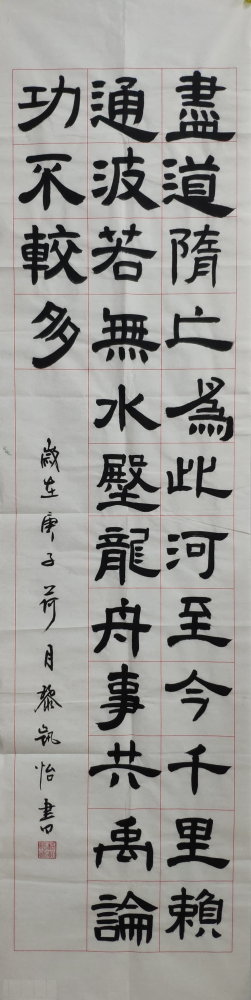 盡道隋亡爲此河至今千里賴
通波若無水壂龍舟事共禹論
功不較多
歲在庚子荷月黎凱怡書